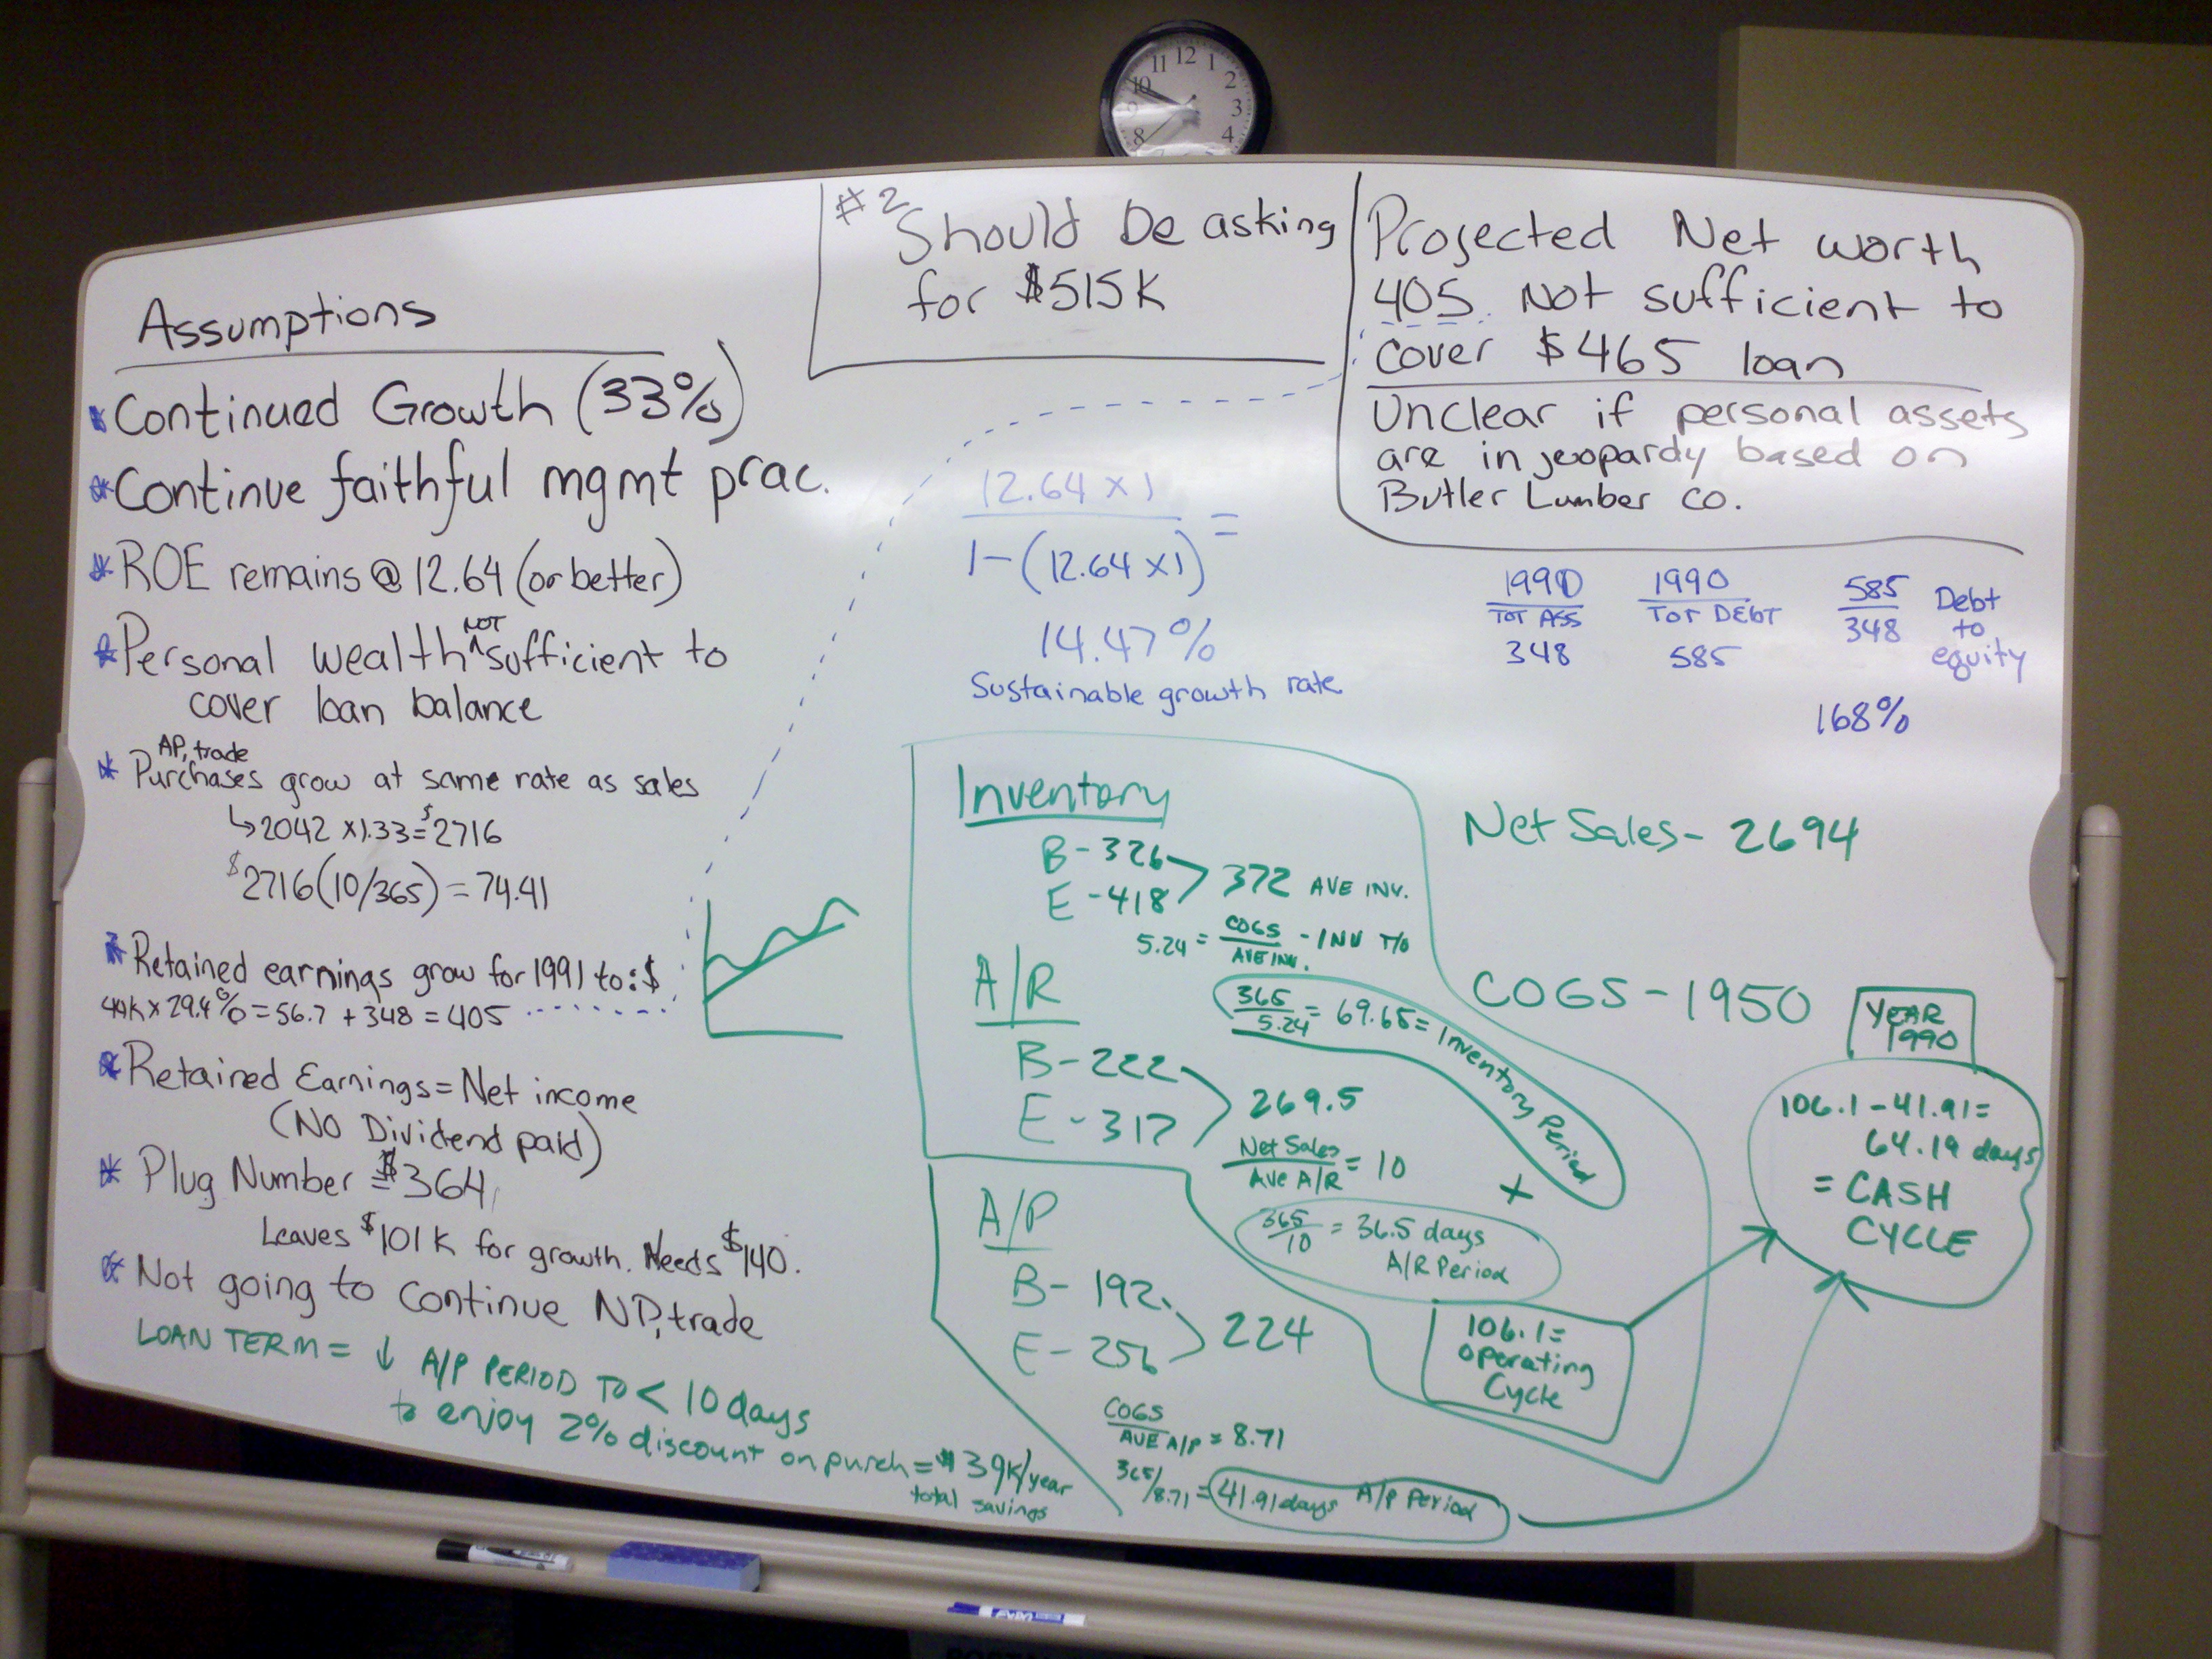 11 12 1
10 2
9 3
8 4
#2 Should be asking
for $515K
Projected Net worth
405. Not sufficient to
cover $465 loan
Unclear if personal assets
are in jeopardy based on
Butler Lumber co.
Assumptions
* Continued Growth (33%)
* Continue faithful mgmt prac.
* ROE remains @ 12.64 (or better)
* Personal wealth NOT sufficient to
cover loan balance
AP, trade
* Purchases grow at same rate as sales
↳ 2042 x 1.33 = $2716
$2716 (10/365) = 74.41
* Retained earnings grow for 1991 to: $
44K x 29.4% = 56.7 + 348 = 405
* Retained Earnings = Net income
(No Dividend paid)
* Plug Number = $364
Leaves $101K for growth. Needs $140.
* Not going to continue NP, trade
LOAN TERM = ↓ A/P PERIOD TO < 10 days
to enjoy 2% discount on purch = $39K/year
total savings
12.64 x 1
1 - (12.64 x 1) =
14.47%
Sustainable growth rate
1990 1990 585 Debt
TOT ASS TOT DEBT 348 to
348 585 equity
168%
Inventory
B - 326
E - 418 > 372 AVE INV.
5.24 = COGS / AVE INV. - INV T/O
365 / 5.24 = 69.65 = Inventory Period
A/R
B - 222
E - 317 > 269.5
Net Sales / Ave A/R = 10
+
365 / 10 = 36.5 days
A/R Period
106.1 =
operating
Cycle
A/P
B - 192
E - 256 > 224
COGS / AVE A/P = 8.71
365/8.71 = 41.91 days A/P Period
Net Sales - 2694
COGS - 1950
YEAR
1990
106.1 - 41.91 =
64.19 days
= CASH
CYCLE